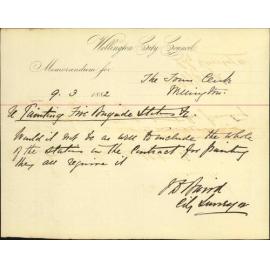 Wellington City Council
Memorandum for
The Town Clerk
Wellington
9.3 1882
Re Painting Fire Brigade Station &c.
Would it not be as well to include the whole
of the stations in the Contract for painting
they all require it
Baird
City Surveyor